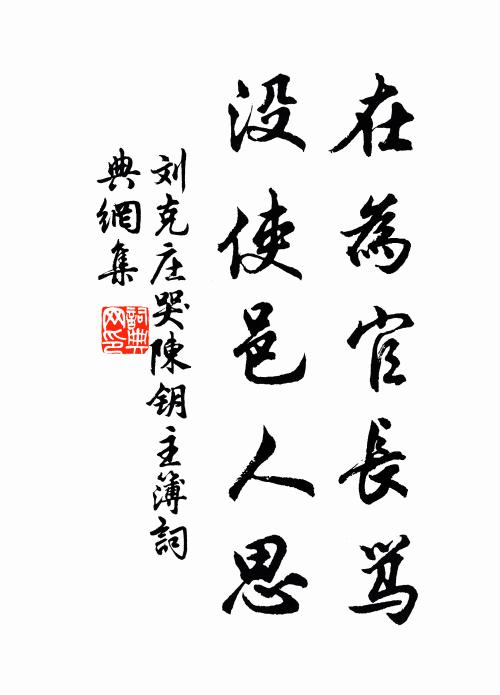 在為官長骂
没使邑人思
刘克庄哭陳钥主簿詞
典網集
詞典网印